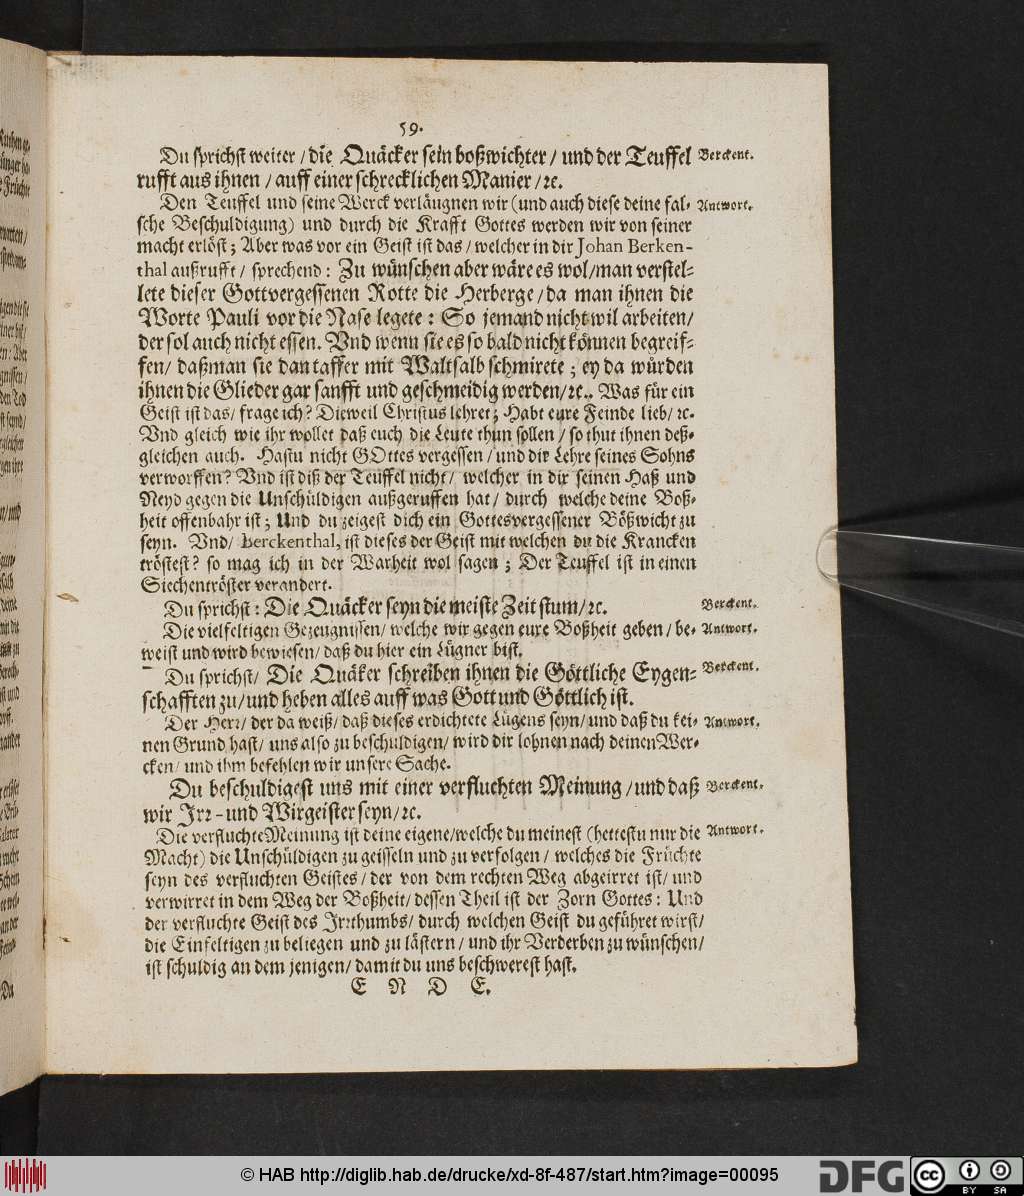 59.
Du sprichst weiter / die Quäcker sein boßwichter / und der Teuffel Berckent.
rufft aus ihnen / auff einer schrecklichen Manier /ꝛc.
Den Teuffel und seine Werck verläugnen wir (und auch diese deine fal- Antwort.
sche Beschuldigung) und durch die Krafft Gottes werden wir von seiner
macht erlöst; Aber was vor ein Geist ist das / welcher in dir Johan Berken-
thal außrufft / sprechend: Zu wünschen aber wäre es wol/man verstel-
lete dieser Gottvergessenen Rotte die Herberge/da man ihnen die
Worte Pauli vor die Nase legete: So jemand nicht wil arbeiten/
der sol auch nicht essen. Vnd wenn sie es so bald nicht können begreif-
fen/ daßman sie dan taffer mit Waltsalb schmirete; ey da würden
ihnen die Glieder gar sanfft und geschmeidig werden/ꝛc.. Was für ein
Geist ist das/ frage ich? Dieweil Christus lehret; Habt eure Feinde lieb/ ꝛc.
Vnd gleich wie ihr wollet daß euch die Leute thun sollen / so thut ihnen deß-
gleichen auch. Hastu nicht GOttes vergessen / und die Lehre seines Sohns
verworffen? Vnd ist diß der Teuffel nicht/ welcher in dir seinen Haß und
Neyd gegen die Unschüldigen außgeruffen hat / durch welche deine Boß-
heit offenbahr ist; Und du zeigest dich ein Gottesvergessener Bößwicht zu
seyn. Vnd/ Berckenthal, ist dieses der Geist mit welchen du die Krancken
tröstest? so mag ich in der Warheit wol sagen; Der Teuffel ist in einen
Siechentröster verandert.
Du sprichst: Die Quäcker seyn die meiste Zeit stum/ꝛc. Berckent.
Die vielfeltigen Gezeugnissen/ welche wir gegen eure Boßheit geben / be- Antwort.
weist und wird bewiesen/ daß du hier ein Lügner bist.
Du sprichst/ Die Quäker schreiben ihnen die Göttliche Eygen- Berckent.
schafften zu/und heben alles auff was Gott und Göttlich ist.
Der Herr/ der da weiß/ daß dieses erdichtete Lügens seyn/ und daß du kei- Antwort.
nen Grund hast/ uns also zu beschuldigen/ wird dir lohnen nach deinen Wer-
cken/ und ihm befehlen wir unsere Sache.
Du beschuldigest uns mit einer verfluchten Meinung /und daß Berckent.
wir Irr-und Wirgeister seyn/ꝛc.
Die verfluchte Meinung ist deine eigene/welche du meinest (hettestu nur die Antwort.
Macht) die Unschüldigen zu geisseln und zu verfolgen / welches die Früchte
seyn des verfluchten Geistes/ der von dem rechten Weg abgeirret ist/ und
verwirret in dem Weg der Boßheit/ dessen Theil ist der Zorn Gottes: Und
der verfluchte Geist des Irrthumbs/ durch welchen Geist du geführet wirst/
die Einfeltigen zu beliegen und zu lästern / und ihr Verderben zu wünschen/
ist schuldig an dem jenigen/ damit du uns beschwerest hast.
E N D E.
© HAB http://diglib.hab.de/drucke/xd-8f-487/start.htm?image=00095
DFG
cc
BY SA